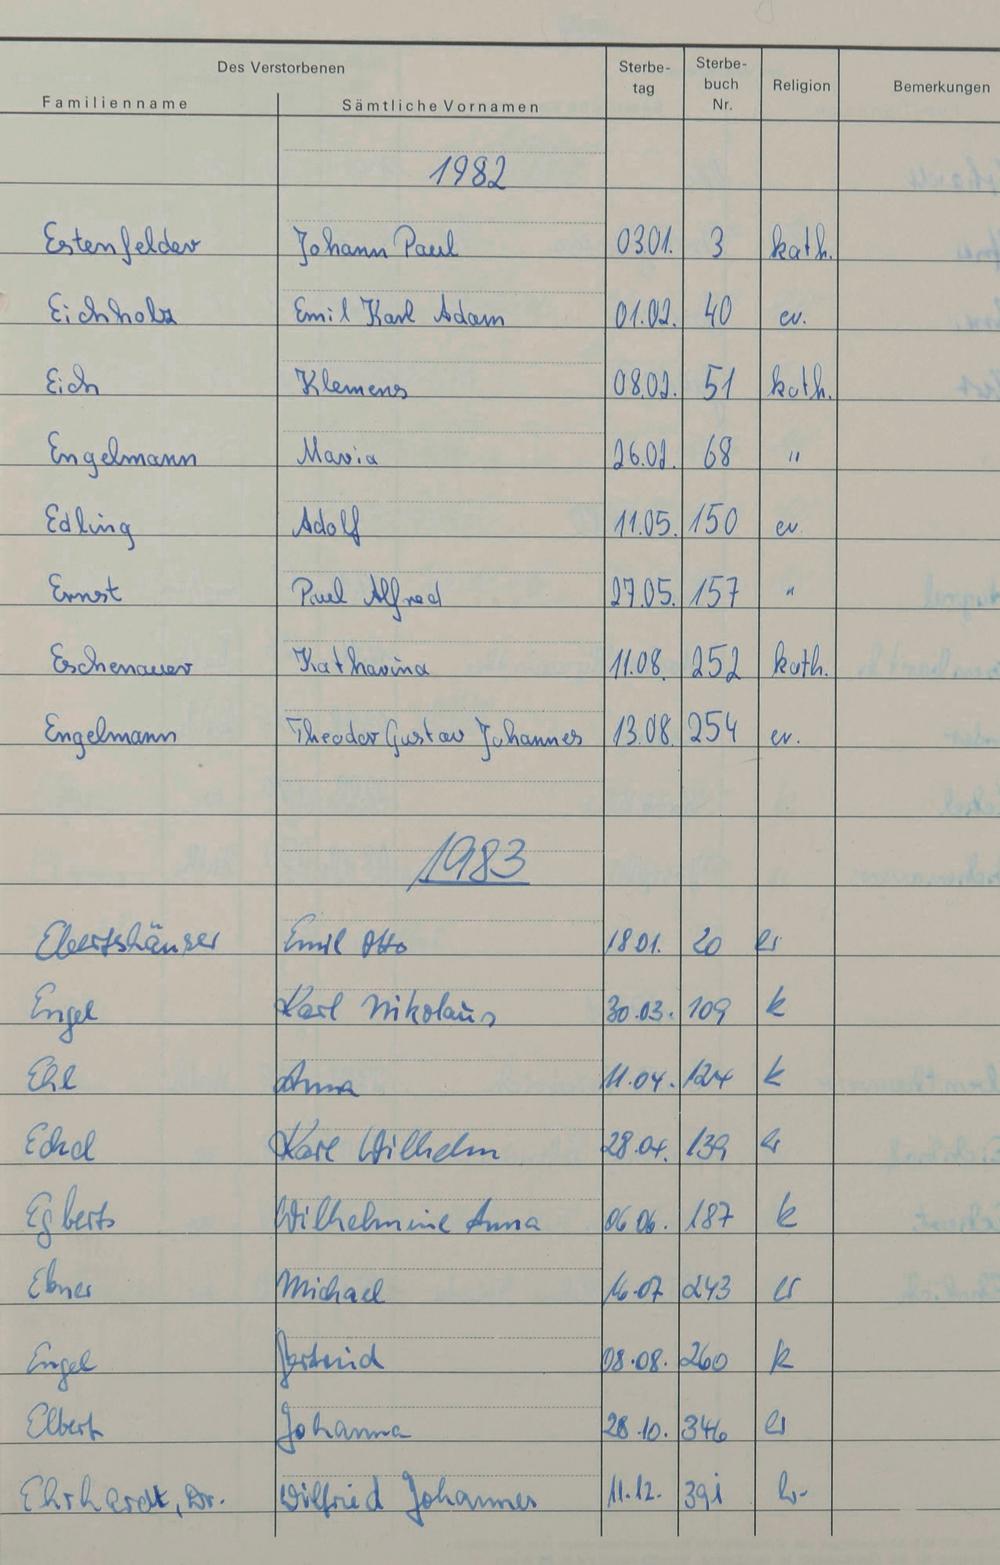 Des Verstorbenen Sterbe- Sterbe-
tag buch Religion Bemerkungen
Familienname Sämtliche Vornamen Nr.
1982
Estenfelder Johann Paul 03.01. 3 kath.
Eichholz Emil Karl Adam 01.02. 40 ev.
Eich Klemens 08.02. 51 kath.
Engelmann Maria 26.02. 68 "
Edling Adolf 11.05. 150 ev.
Ernst Paul Alfred 27.05. 157 "
Eschenauer Katharina 11.08. 252 kath.
Engelmann Theodor Gustav Johannes 13.08. 254 ev.
1983
Ebertshäuser Emil Otto 18.01. 20 ev
Engel Karl Nikolaus 30.03. 109 k
Ehl Anna 11.04. 124 k
Eckel Karl Wilhelm 28.04. 139 ev
Egberts Wilhelmine Anna 06.06. 187 k
Ebner Michael 16.07 243 ev
Engel Gertrud 08.08. 260 k
Elbert Johanna 28.10. 346 ev
Ehrhardt, Dr. Wilfried Johannes 11.12. 391